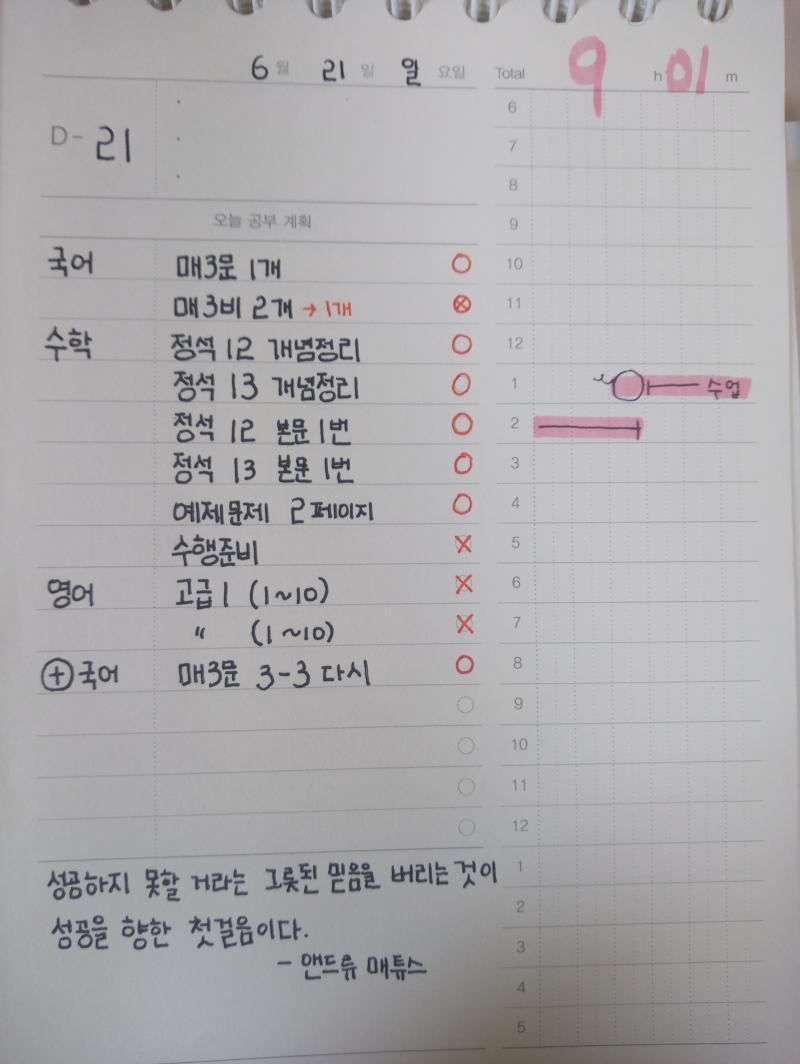 6월 21일 일요일
Total 9h 01m
D-21
오늘 공부 계획
국어 매3문 1개
매3비 2개 → 1개
수학 정석 12 개념정리
정석 13 개념정리
정석 12 본문 1번
정석 13 본문 1번
예제문제 2페이지
수행준비
영어 고급1 (1~10)
〃 (1~10)
+국어 매3문 3-3 다시
성공하지 못할 거라는 그릇된 믿음을 버리는 것이
성공을 향한 첫걸음이다.
- 앤드류 매튜스
6
7
8
9
10
11
12
1 수업
2
3
4
5
6
7
8
9
10
11
12
1
2
3
4
5